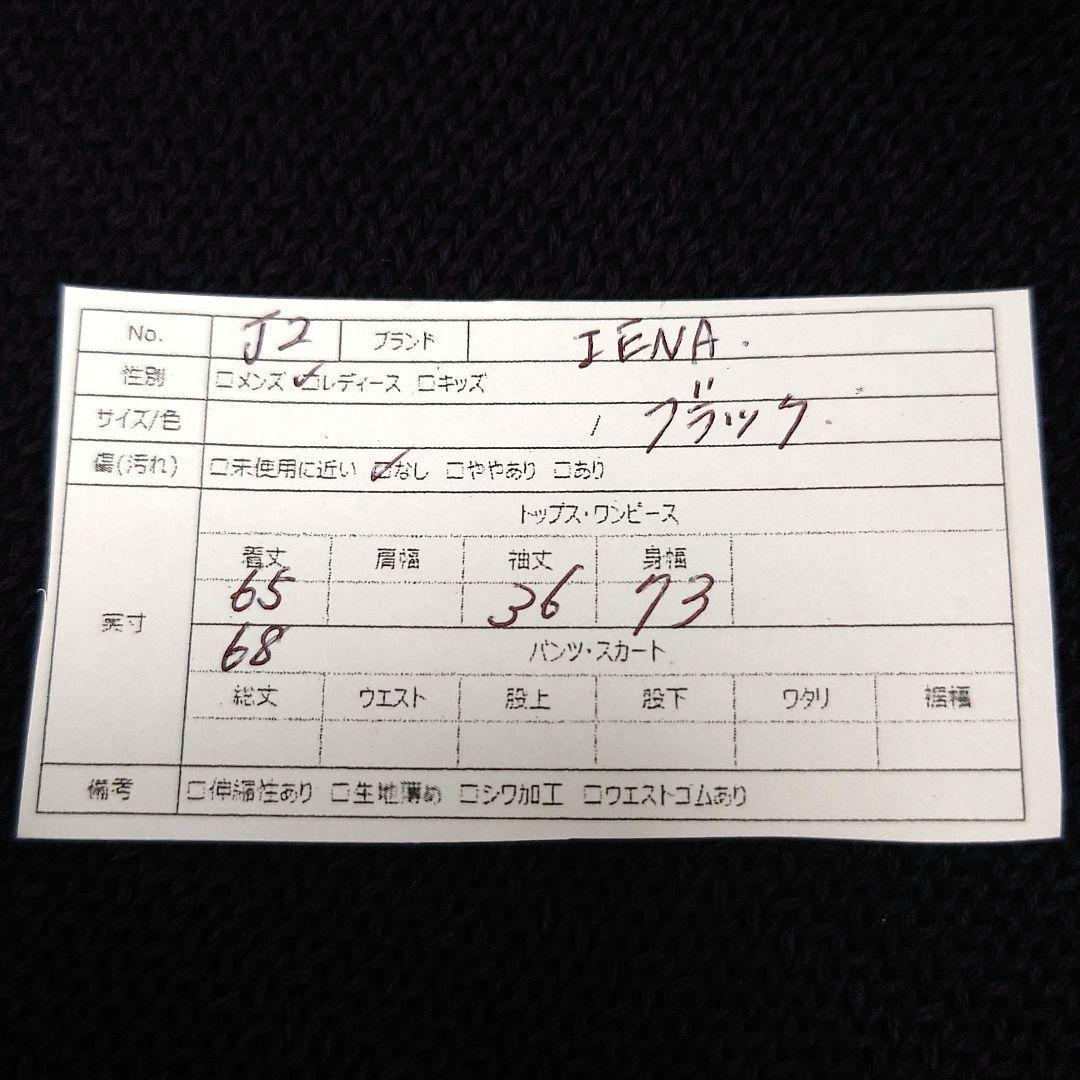 No. J2 ブランド IENA.
性別 □メンズ ☑レディース □キッズ
サイズ/色 / ブラック.
傷(汚れ) □未使用に近い ☑なし □ややあり □あり
トップス・ワンピース
着丈 肩幅 袖丈 身幅
65 36 73
実寸
68 パンツ・スカート
総丈 ウエスト 股上 股下 ワタリ 裾幅
備考 □伸縮性あり □生地薄め □シワ加工 □ウエストゴムあり